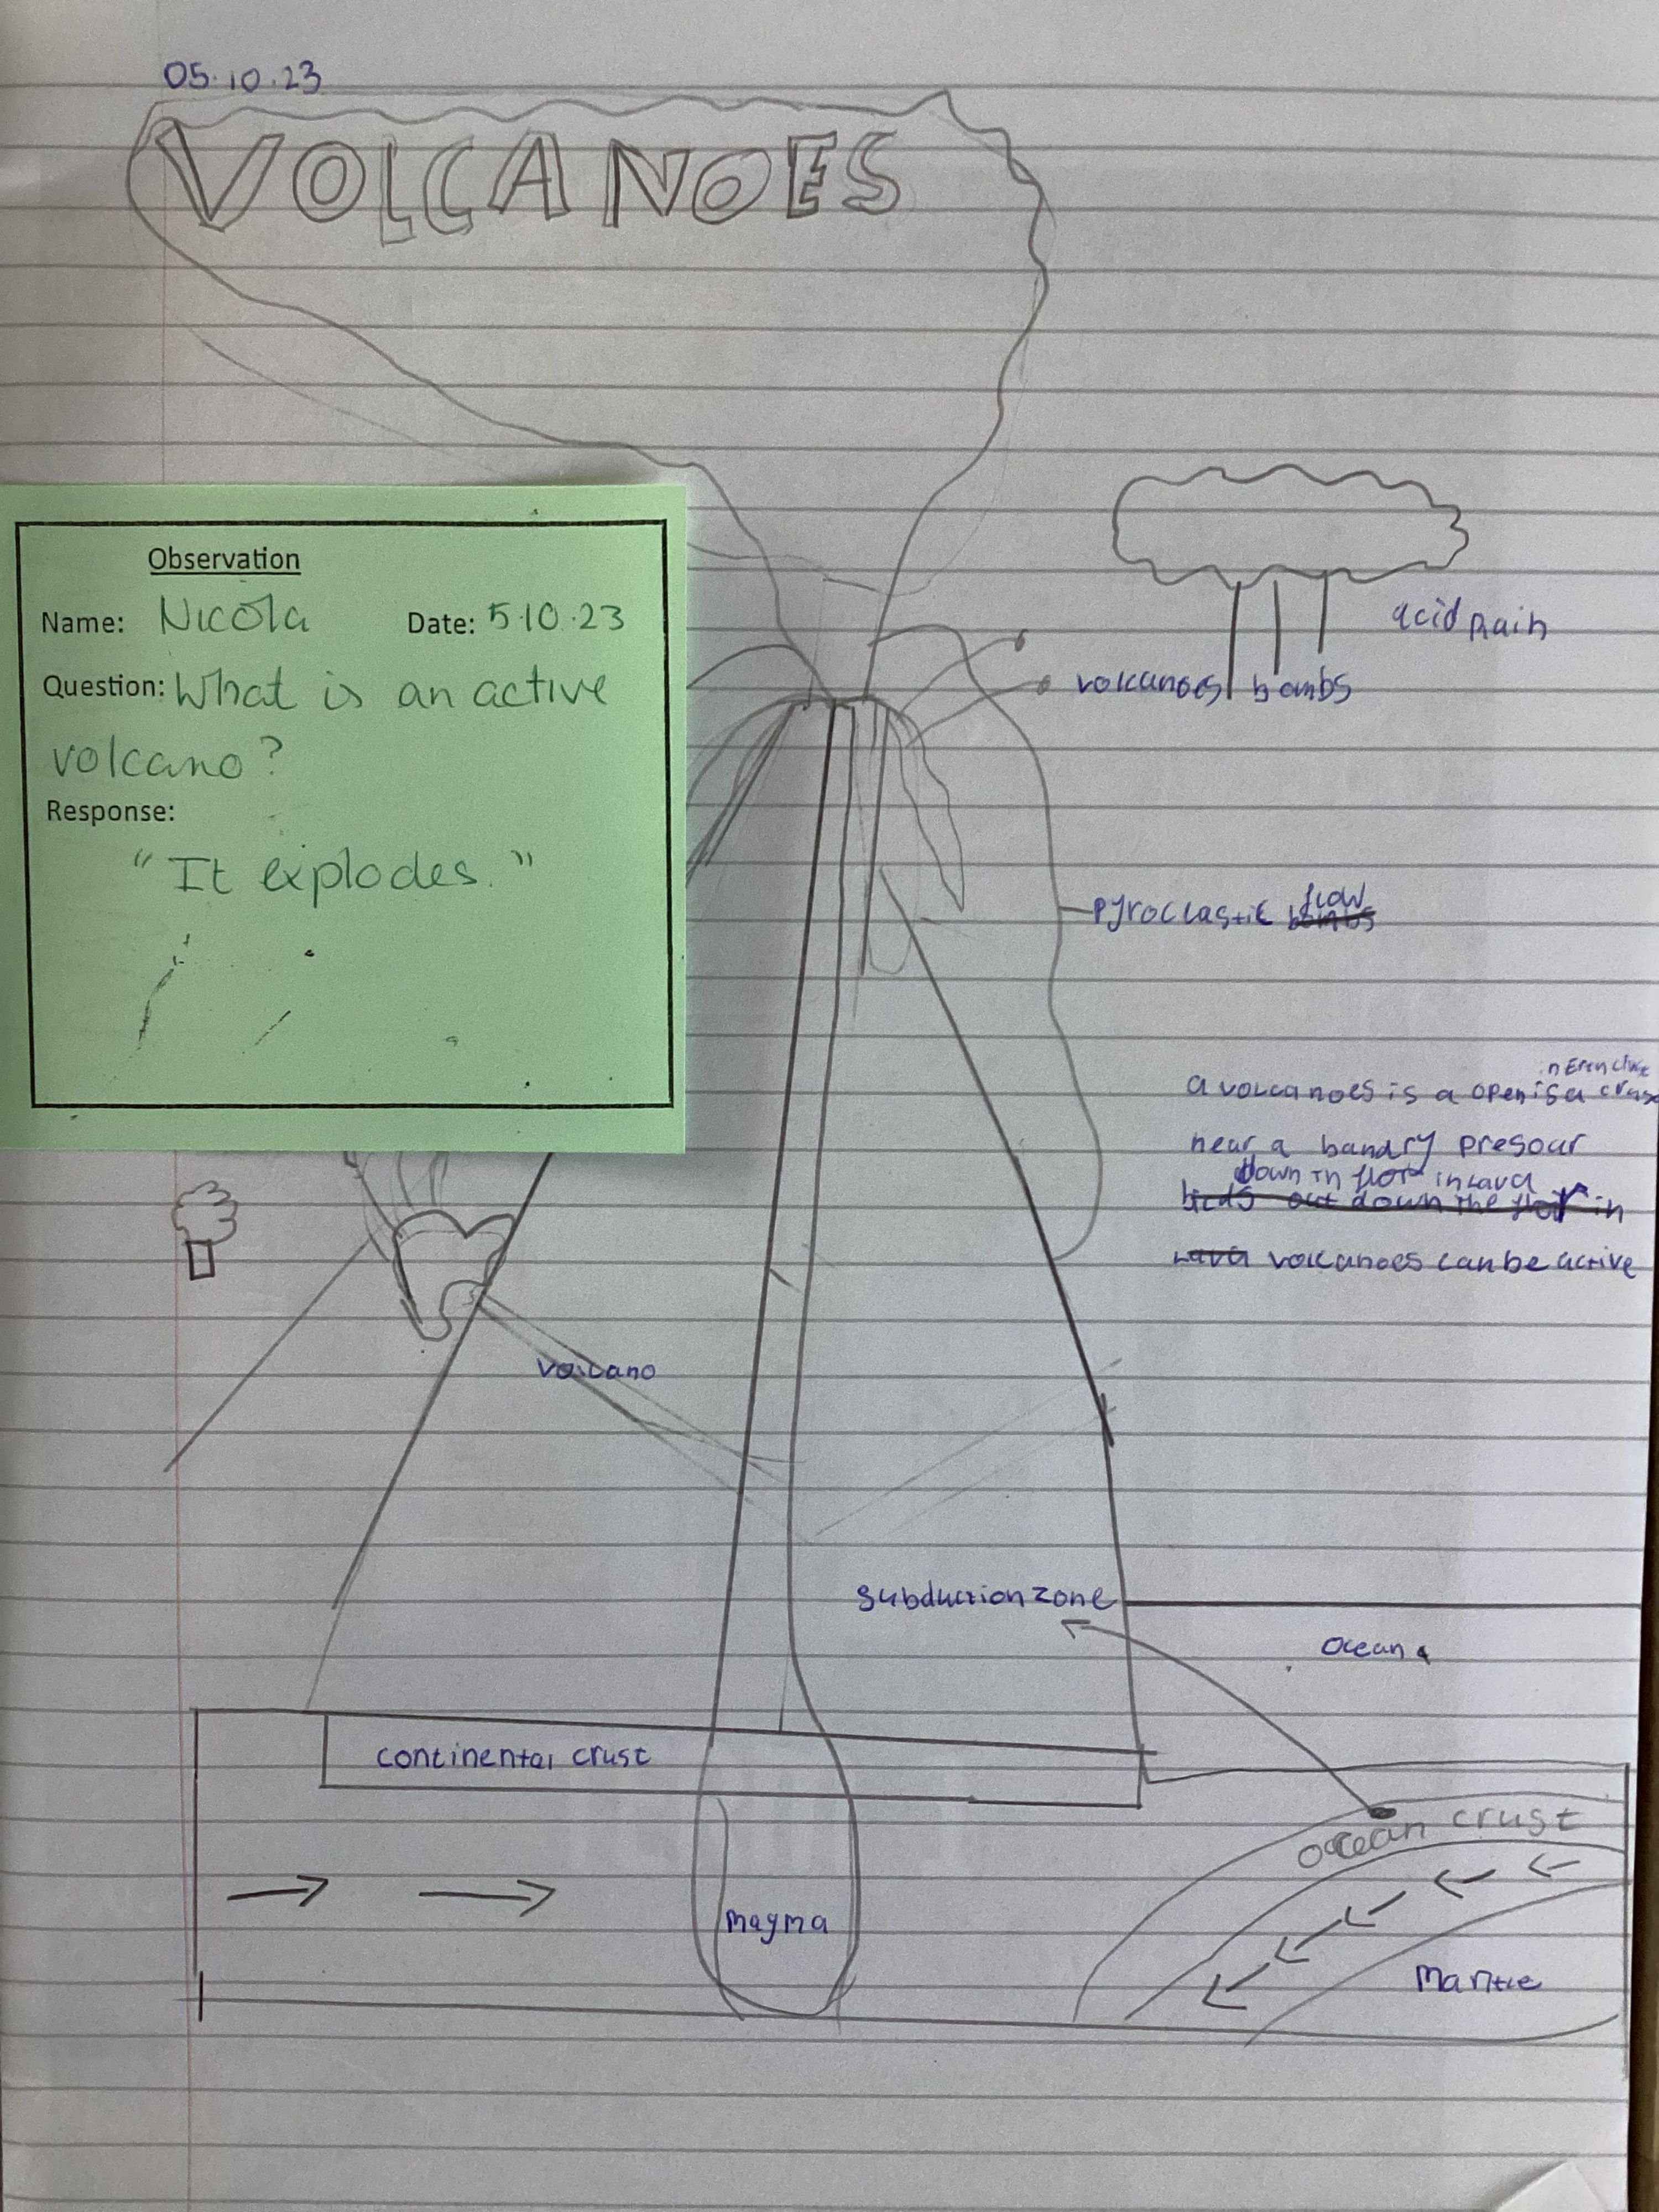 05.10.23
VOLCANOES
Observation
Name: Nicola Date: 5.10.23
Question: What is an active
volcano?
Response:
"It explodes."
acid Rain
volcanoes bombs
pyroclastic bombs flow
a volcanoes is a open is a
near a bandry presour
down in flor in lava
birds out down the flor in
lava volcanoes can be active
volcano
subduction zone
ocean
continental crust
ocean crust
magma
Mantle